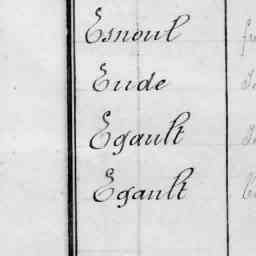 Esnoul
Eude
Egault
Egault